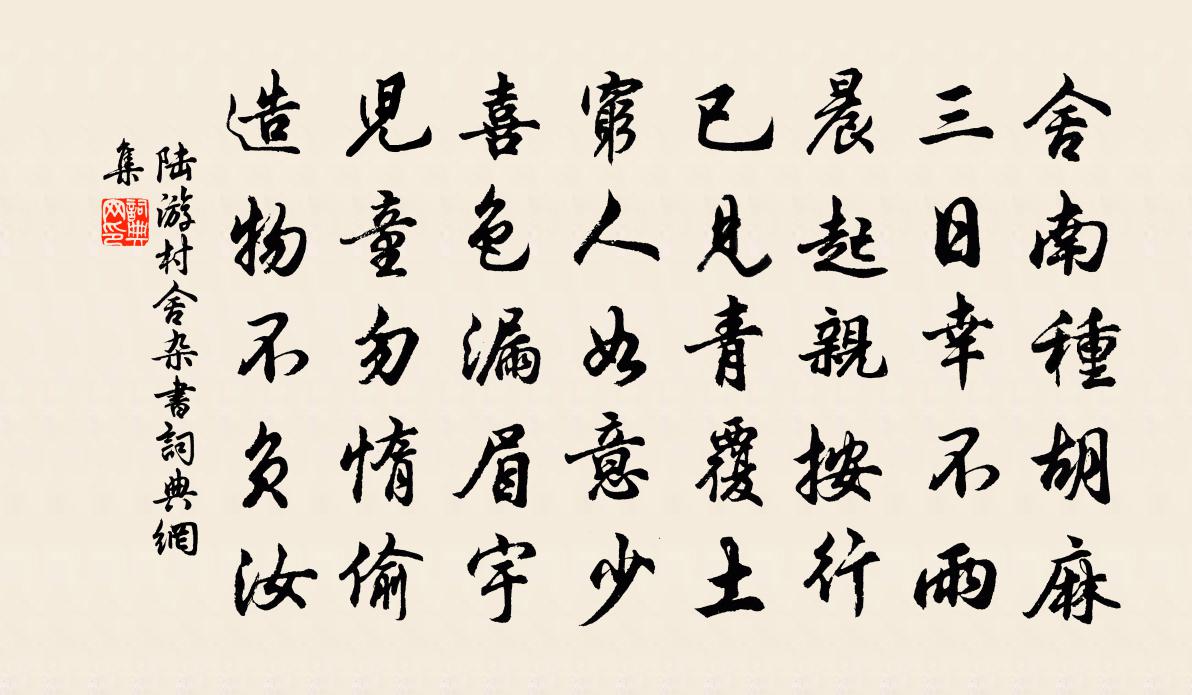 舍南種胡麻
三日幸不雨
晨起親按行
已見青覆土
窮人如意少
喜色漏眉宇
兒童勿惰偷
造物不負汝
陆游村舍杂書詞典網
集
詞典
网印